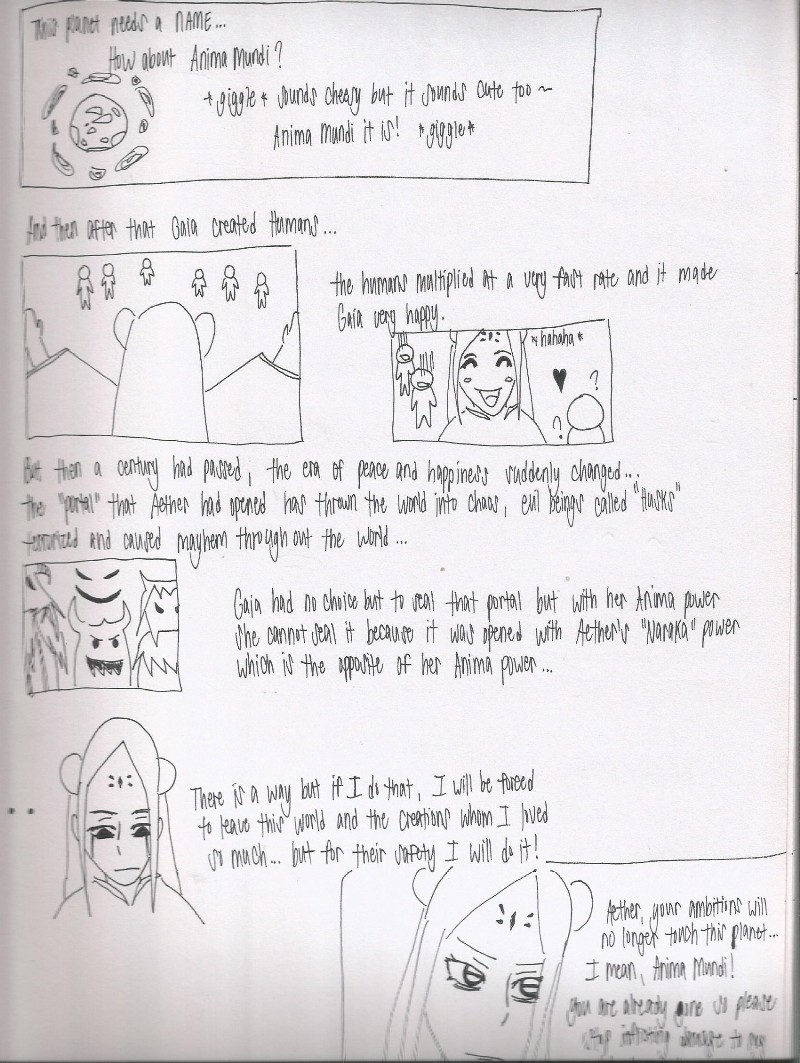 This planet needs a NAME...
How about Anima Mundi?
*giggle* sounds cheesy but it sounds cute too ~
Anima Mundi it is! *giggle*
And then after that Gaia created Humans...
the humans multiplied at a very fast rate and it made
Gaia very happy.
*hahaha*
?
?
But then a century had passed, the era of peace and happiness suddenly changed...
the "portal" that Aether had opened has thrown the world into chaos, evil beings called "Husks"
terrorized and caused mayhem through out the world...
Gaia had no choice but to seal that portal but with her Anima power
she cannot seal it because it was opened with Aether's "Naraka" power
which is the opposite of her Anima power...
There is a way but if I do that, I will be forced
to leave this world and the creations whom I loved
so much... but for their safety I will do it!
Aether, your ambitions will
no longer touch this planet...
I mean, Anima Mundi!
you are already gone so please
stop inflicting damage to my